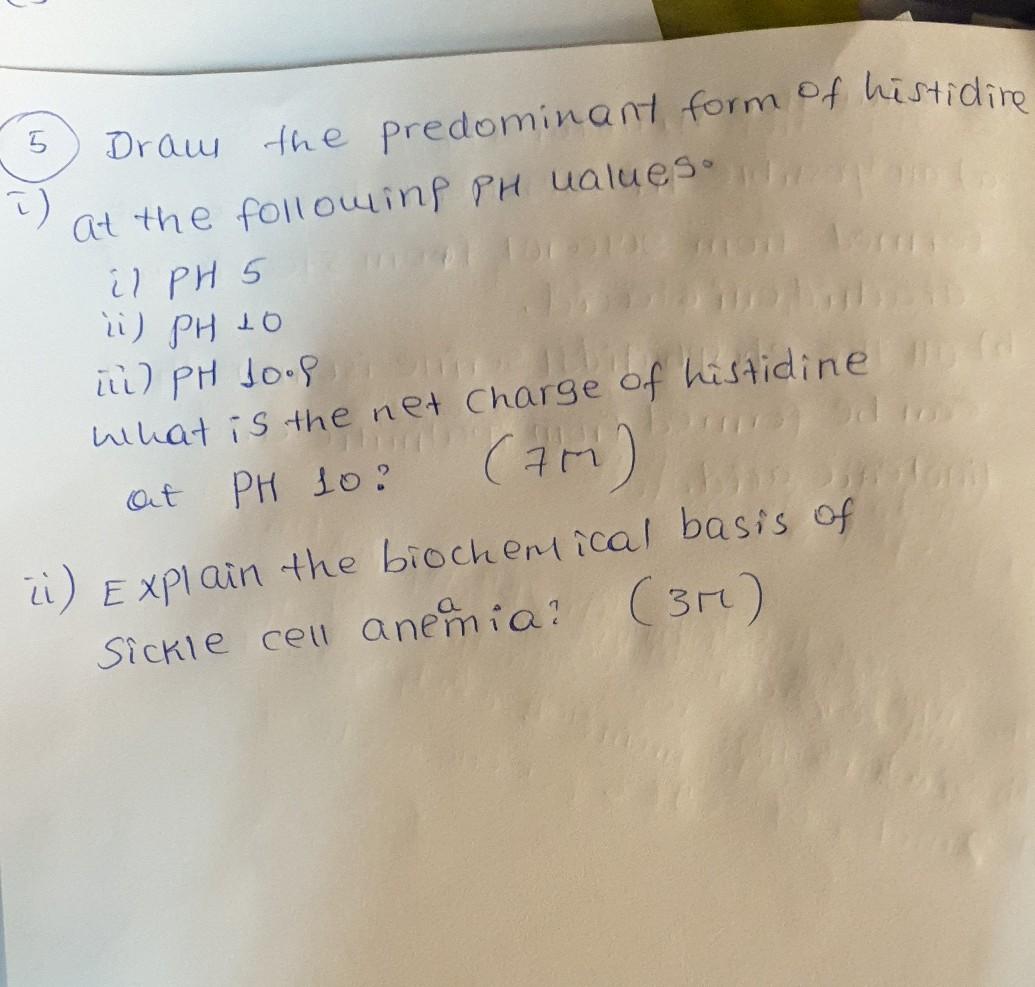 5 Draw the predominant form of histidine
i) at the following PH values.
i) PH 5
ii) PH 10
iii) PH 10.9
what is the net charge of histidine
at PH 10? (7M)
ii) Explain the biochemical basis of
Sickle cell anemia? (3M)